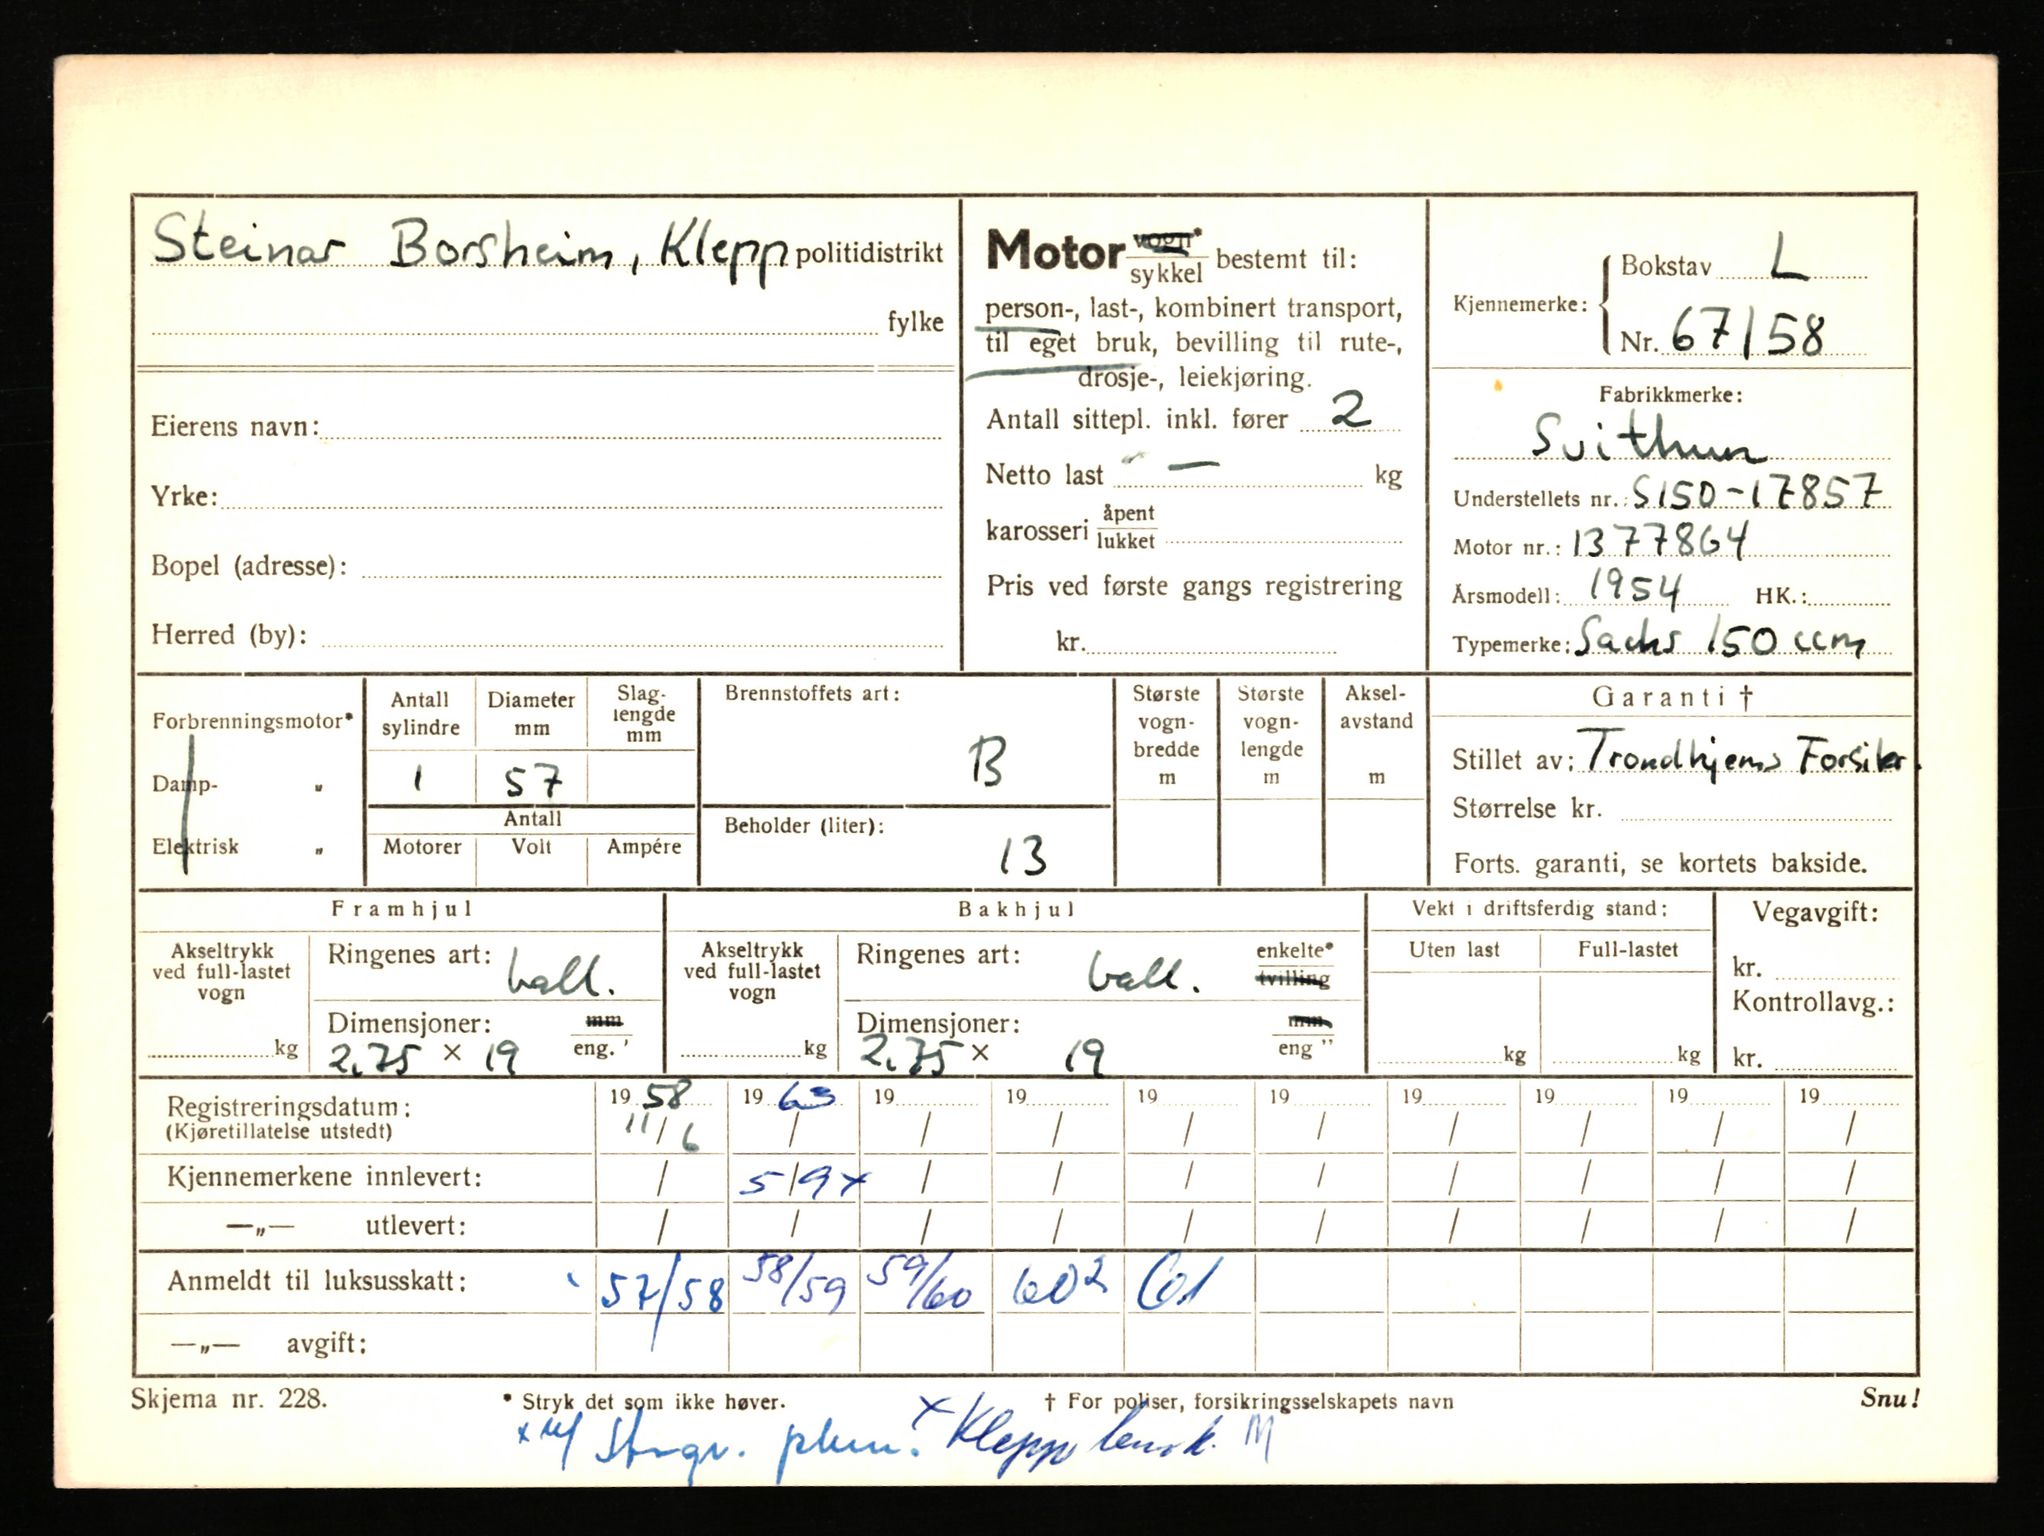 Steinar Borsheim, Klepp politidistrikt
fylke
Eierens navn:
Yrke:
Bopel (adresse):
Herred (by):
Motor vogn* sykkel bestemt til:
person-, last-, kombinert transport,
til eget bruk, bevilling til rute-,
drosje-, leiekjøring.
Antall sittepl. inkl. fører 2
Netto last — kg
karosseri åpent lukket
Pris ved første gangs registrering
kr.
Kjennemerke: Bokstav L
Nr. 67158
Fabrikkmerke:
Svithun
Understellets nr.: S150-17857
Motor nr.: 1377864
Årsmodell: 1954 HK.:
Typemerke: Sachs 150 ccm
Forbrenningsmotor*
Damp- „
Elektrisk „
Antall sylindre
Diameter mm
Slag-lengde mm
1 57
Antall
Motorer Volt Ampére
Brennstoffets art:
B
Beholder (liter):
13
Største vogn-bredde m
Største vogn-lengde m
Aksel-avstand m
Garanti †
Stillet av: Trondhjems Forsikr.
Størrelse kr.
Forts. garanti, se kortets bakside.
Framhjul
Akseltrykk ved full-lastet vogn
kg
Ringenes art: ball.
Dimensjoner: mm eng. '
2.75 × 19
Bakhjul
Akseltrykk ved full-lastet vogn
kg
Ringenes art: ball. enkelte* tvilling
Dimensjoner: mm eng "
2.75 × 19
Vekt i driftsferdig stand:
Uten last Full-lastet
kg kg
Vegavgift:
kr.
Kontrollavg.:
kr.
Registreringsdatum: 19 58 19 63 19 19 19 19 19 19 19 19
(Kjøretillatelse utstedt) 11/6 / / / / / / / / /
Kjennemerkene innlevert: / 5/9 x / / / / / / / /
—„— utlevert: / / / / / / / / / /
Anmeldt til luksusskatt: 57/58 58/59 59/60 60² 61
—„— avgift:
Skjema nr. 228. * Stryk det som ikke høver. † For poliser, forsikringsselskapets navn Snu!
x Klepp lensk. M